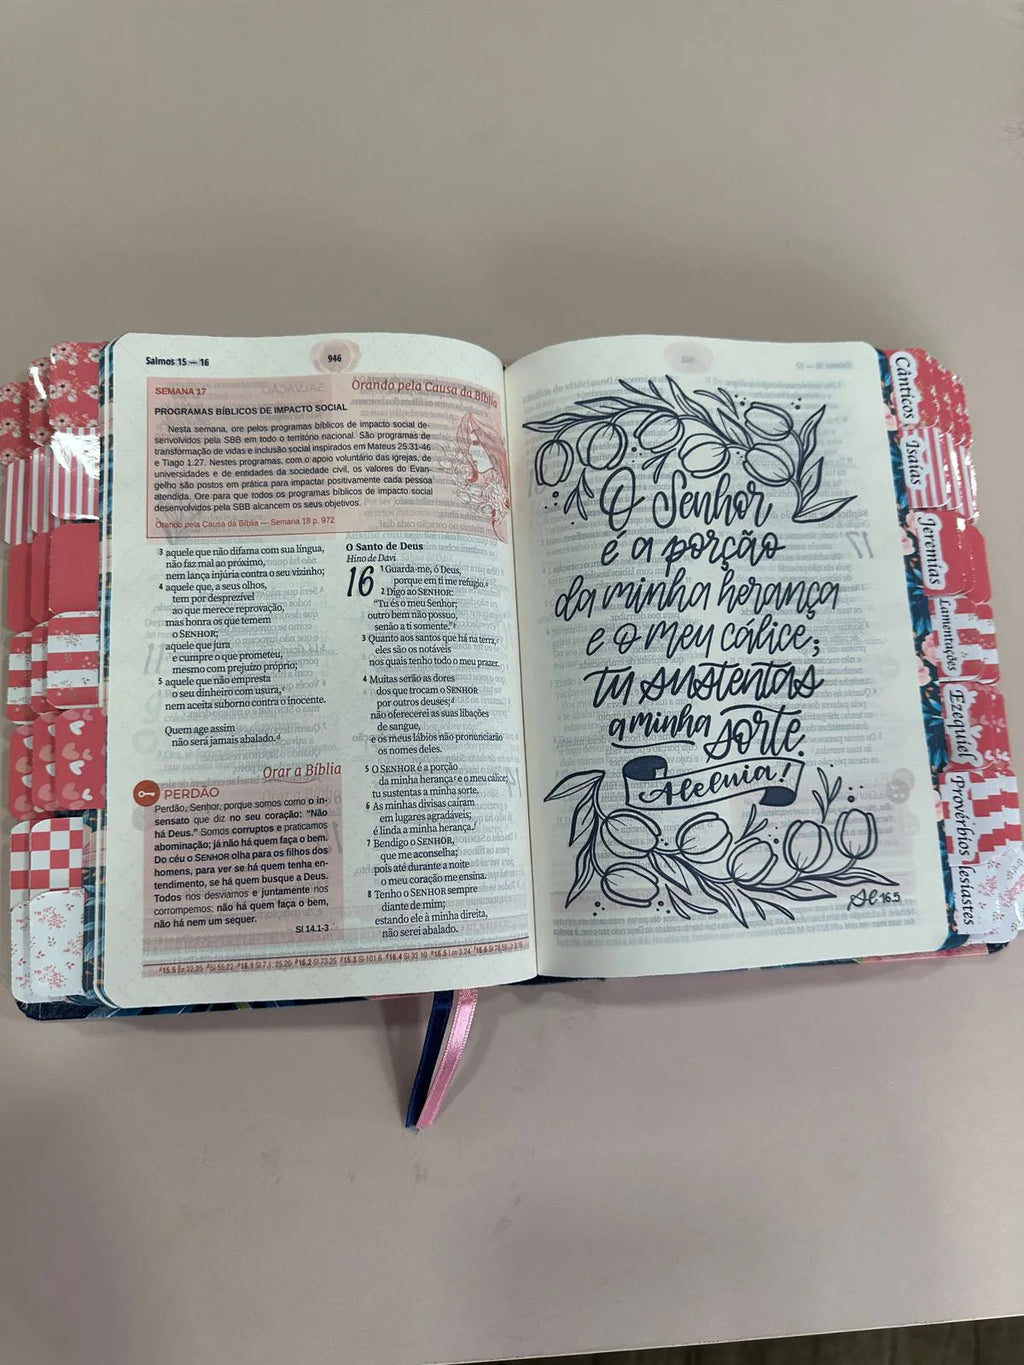 Salmos 15 — 16
946
Orando pela Causa da Bíblia
SEMANA 17
PROGRAMAS BÍBLICOS DE IMPACTO SOCIAL
Nesta semana, ore pelos programas bíblicos de impacto social de-
senvolvidos pela SBB em todo o território nacional. São programas de
transformação de vidas e inclusão social inspirados em Mateus 25.31-46
e Tiago 1.27. Nestes programas, com o apoio voluntário das igrejas, de
universidades e de entidades da sociedade civil, os valores do Evan-
gelho são postos em prática para impactar positivamente cada pessoa
atendida. Ore para que todos os programas bíblicos de impacto social
desenvolvidos pela SBB alcancem os seus objetivos.
Orando pela Causa da Bíblia — Semana 18 p. 972
3 aquele que não difama com sua língua,
não faz mal ao próximo,
nem lança injúria contra o seu vizinho;
4 aquele que, a seus olhos,
tem por desprezível
ao que merece reprovação,
mas honra os que temem
o SENHOR;
aquele que jura
e cumpre o que prometeu,
mesmo com prejuízo próprio;
5 aquele que não empresta
o seu dinheiro com usura,c
nem aceita suborno contra o inocente.
Quem age assim
não será jamais abalado.d
Orar a Bíblia
PERDÃO
Perdão, Senhor, porque somos como o in-
sensato que diz no seu coração: “Não
há Deus.” Somos corruptos e praticamos
abominação; já não há quem faça o bem.
Do céu o SENHOR olha para os filhos dos
homens, para ver se há quem tenha en-
tendimento, se há quem busque a Deus.
Todos nos desviamos e juntamente nos
corrompemos; não há quem faça o bem,
não há nem um sequer.
Sl 14.1-3
O Santo de Deus
Hino de Davi
16 1 Guarda-me, ó Deus,
porque em ti me refúgio.a
2 Digo ao SENHOR:
“Tu és o meu Senhor;
outro bem não possuo,
senão a ti somente.”b
3 Quanto aos santos que há na terra,c
eles são os notáveis
nos quais tenho todo o meu prazer.
4 Muitas serão as dores
dos que trocam o SENHOR
por outros deuses;d
não oferecerei as suas libações
de sangue,
e os meus lábios não pronunciarão
os nomes deles.
5 O SENHOR é a porção
da minha herança e o meu cálice;
tu sustentas a minha sorte.
6 As minhas divisas caíram
em lugares agradáveis;
é linda a minha herança.f
7 Bendigo o SENHOR,
que me aconselha;
pois até durante a noite
o meu coração me ensina.
8 Tenho o SENHOR sempre
diante de mim;
estando ele à minha direita,
não serei abalado.
O Senhor
é a porção
da minha herança
e o meu cálice;
tu sustentas
a minha sorte.
Aleluia!
Sl 16.5
Cânticos
Isaías
Jeremias
Lamentações
Ezequiel
Provérbios
lesiastes